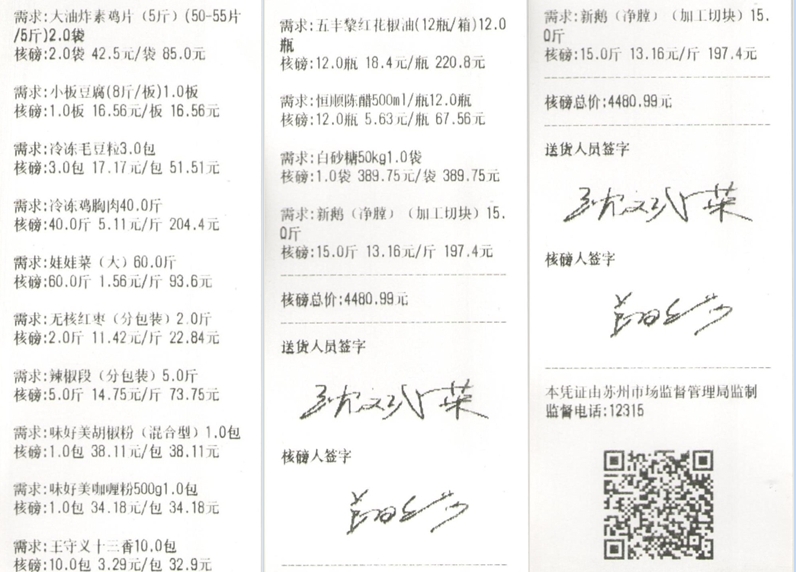 需求:大油炸素鸡片(5斤)(50-55片
/5斤)2.0袋
核磅:2.0袋 42.5元/袋 85.0元
需求:小板豆腐(8斤/板)1.0板
核磅:1.0板 16.56元/板 16.56元
需求:冷冻毛豆粒3.0包
核磅:3.0包 17.17元/包 51.51元
需求:冷冻鸡胸肉40.0斤
核磅:40.0斤 5.11元/斤 204.4元
需求:娃娃菜(大)60.0斤
核磅:60.0斤 1.56元/斤 93.6元
需求:无核红枣(分包装)2.0斤
核磅:2.0斤 11.42元/斤 22.84元
需求:辣椒段(分包装)5.0斤
核磅:5.0斤 14.75元/斤 73.75元
需求:味好美胡椒粉(混合型)1.0包
核磅:1.0包 38.11元/包 38.11元
需求:味好美咖喱粉500g1.0包
核磅:1.0包 34.18元/包 34.18元
需求:王守义十三香10.0包
核磅:10.0包 3.29元/包 32.9元
需求:五丰黎红花椒油(12瓶/箱)12.0
瓶
核磅:12.0瓶 18.4元/瓶 220.8元
需求:恒顺陈醋500ml/瓶12.0瓶
核磅:12.0瓶 5.63元/瓶 67.56元
需求:白砂糖50kg1.0袋
核磅:1.0袋 389.75元/袋 389.75元
需求:新鹅(净膛)(加工切块)15.
0斤
核磅:15.0斤 13.16元/斤 197.4元
核磅总价:4480.99元
送货人员签字
核磅人签字
需求:新鹅(净膛)(加工切块)15.
0斤
核磅:15.0斤 13.16元/斤 197.4元
核磅总价:4480.99元
送货人员签字
核磅人签字
本凭证由苏州市场监督管理局监制
监督电话:12315